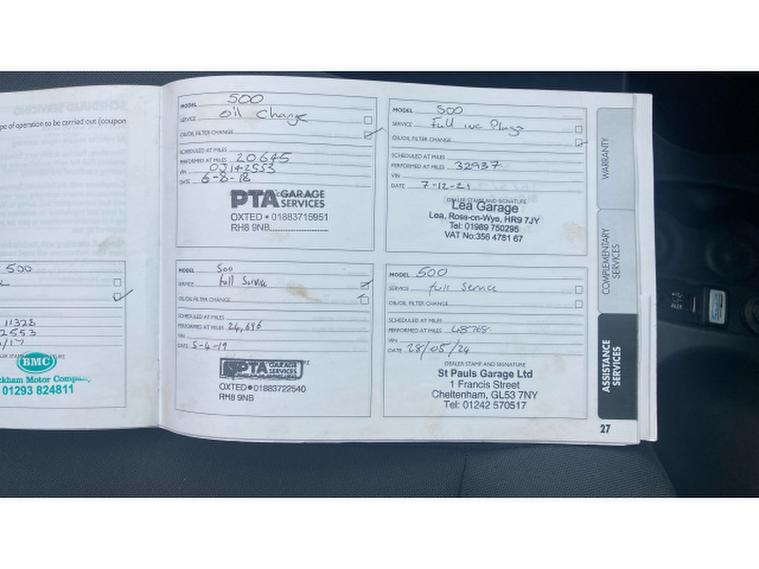 SCHEDULED SERVICING
pe of operation to be carried out (coupon
500
11328
2553
/17
BMC
ckham Motor Company
01293 824811
MODEL 500
SERVICE Oil Change
OIL/OIL FILTER CHANGE
SCHEDULED AT MILES
PERFORMED AT MILES 20645
VIN 0J142553
DATE 6-8-18
PTA GARAGE SERVICES
OXTED • 01883715951
RH8 9NB
MODEL 500
SERVICE full Service
OIL/OIL FILTER CHANGE
SCHEDULED AT MILES
PERFORMED AT MILES 24,696
VIN
DATE 5-4-19
PTA GARAGE SERVICES
OXTED • 01883722540
RH8 9NB
MODEL 500
SERVICE Full inc Plugs
OIL/OIL FILTER CHANGE
SCHEDULED AT MILES
PERFORMED AT MILES 32937
VIN
DATE 7-12-21
DEALER STAMP AND SIGNATURE
Lea Garage
Lea, Ross-on-Wye, HR9 7JY
Tel: 01989 750295
VAT No: 356 4781 67
MODEL 500
SERVICE full Service
OIL/OIL FILTER CHANGE
SCHEDULED AT MILES
PERFORMED AT MILES 48768
VIN
DATE 28/05/24
DEALER STAMP AND SIGNATURE
St Pauls Garage Ltd
1 Francis Street
Cheltenham, GL53 7NY
Tel: 01242 570517
WARRANTY
COMPLEMENTARY
SERVICES
ASSISTANCE
SERVICES
27